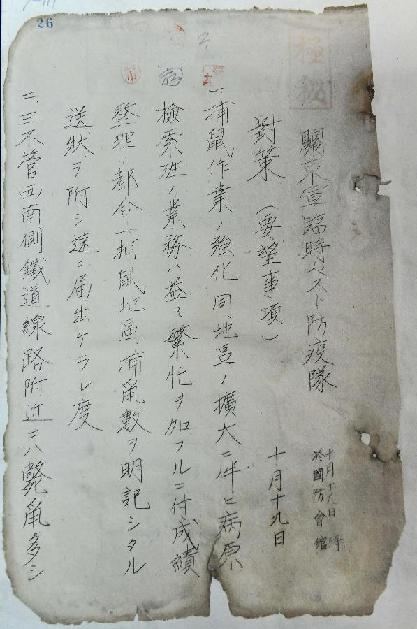 26
極秘
關東軍臨時ペスト防疫隊
十月十九日
於國防會館
對策（要望事項）
十月十九日
一、捕鼠作業ノ強化同地區ノ擴大ニ伴ヒ病原
檢索班ノ業務ハ益々繁忙ヲ加フルニ付成績
整理ノ都合上捕鼠地區捕鼠數ヲ明記シタル
送狀ヲ附シ速ニ届出ケラレ度
二、三不管五南側鐵道線路附近ニハ斃鼠多シ